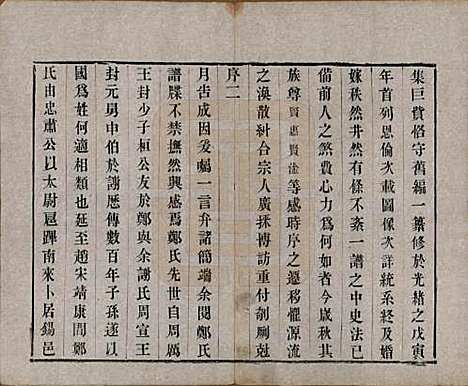 集巨貲俗守舊編一纂修於光緒之戊寅
年首列恩倫次載圖像次詳統系終及婚
嫁秩然井然有條不紊一譜之中史法已
備前人之煞費心力爲何如者今歲秋其
族尊賢惠賢淦等感時序之遷移懼源流
之渙散糾合宗人廣採博訪重付剞劂尅
序二
月告成因爰囑一言弁諸簡端余閱鄭氏
譜牒不禁撫然興感焉鄭氏先世自周厲
王封少子桓公友於鄭與余謝氏周宣王
封元舅申伯於謝歷傳數百年子孫遂以
國爲姓何適相類也延至趙宋靖康間鄭
氏由忠肅公以太尉扈蹕南來卜居錫邑